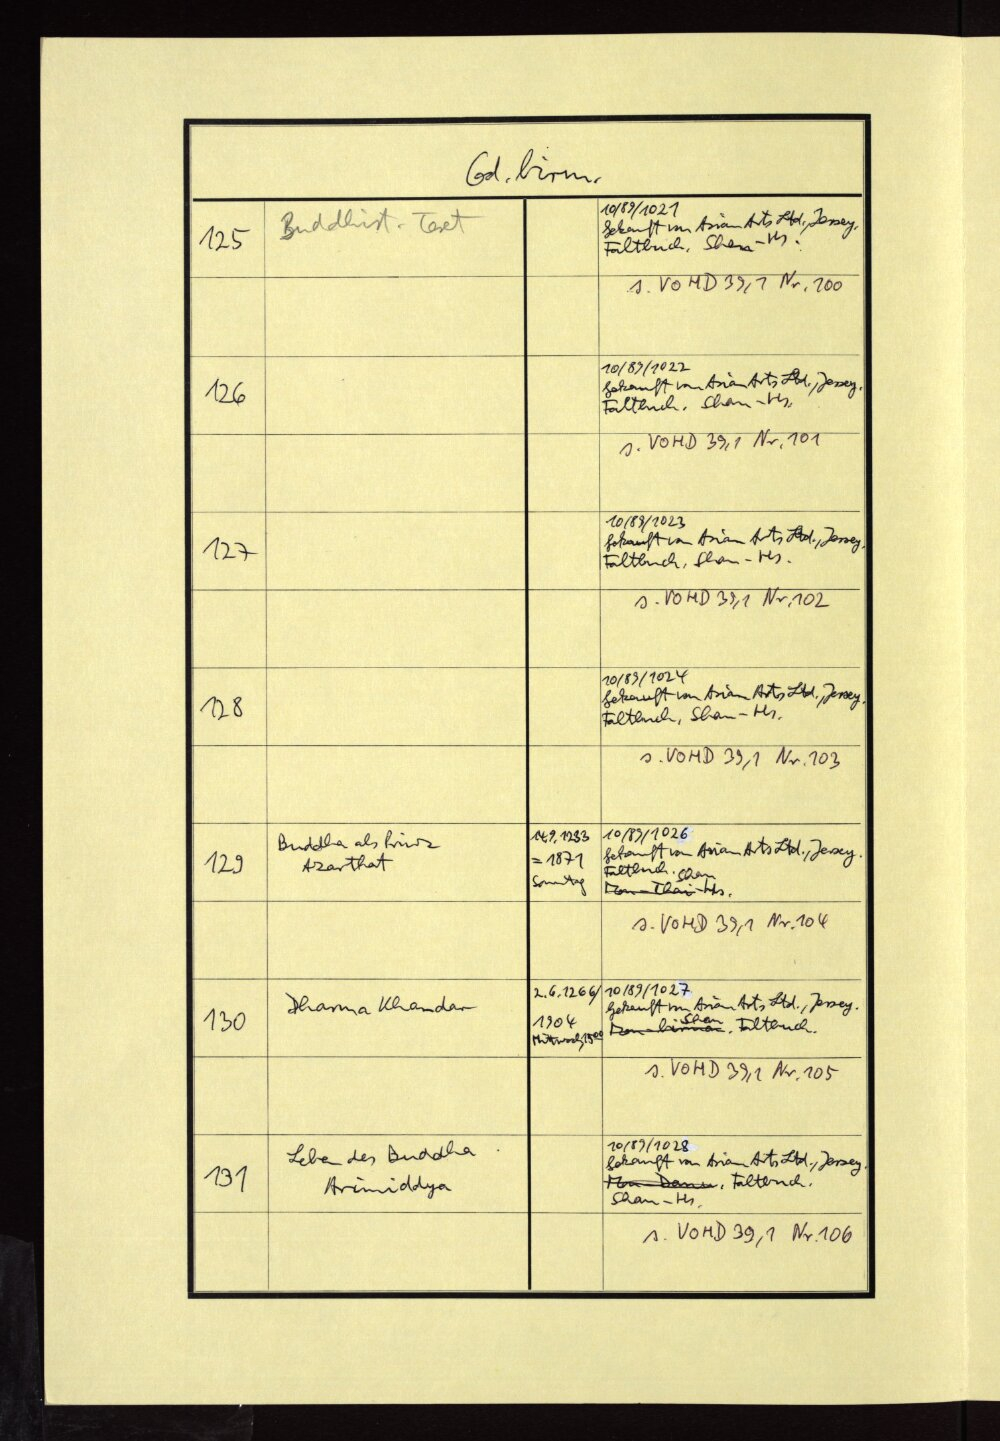 Cod. birm.
125
Buddhist. Text
10/89/1021
Gekauft von Asian Arts Ltd., Jersey.
Faltbuch. Shan-Hs.
s. VOHD 39,1 Nr. 100
126
10/89/1022
Gekauft von Asian Arts Ltd., Jersey.
Faltbuch. Shan-Hs.
s. VOHD 39,1 Nr. 101
127
10/89/1023
Gekauft von Asian Arts Ltd., Jersey.
Faltbuch. Shan-Hs.
s. VOHD 39,1 Nr. 102
128
10/89/1024
Gekauft von Asian Arts Ltd., Jersey.
Faltbuch, Shan-Hs.
s. VOHD 39,1 Nr. 103
129
Buddha als Prinz
Azarthat
14.9.1233
= 1871
Sonntag
10/89/1026
Gekauft von Asian Arts Ltd., Jersey.
Faltbuch. Shan
Mon-Thai-Hs.
s. VOHD 39,1 Nr. 104
130
Dharma Khandar
2.6.1266/
1904
Mittwoch, 15.00
10/89/1027
Gekauft von Asian Arts Ltd., Jersey.
Shan
Mon-birman. Faltbuch.
s. VOHD 39,1 Nr. 105
131
Leben des Buddha
Arimiddya
10/89/1028
Gekauft von Asian Arts Ltd., Jersey.
Faltbuch.
Shan-Hs.
s. VOHD 39,1 Nr. 106